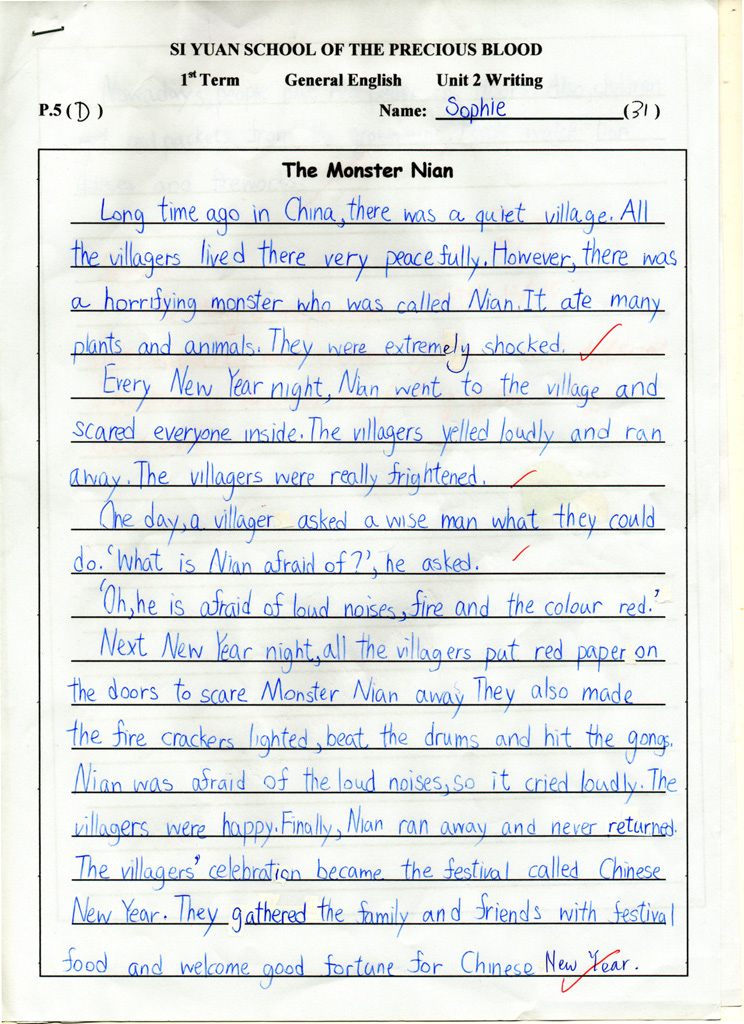 SI YUAN SCHOOL OF THE PRECIOUS BLOOD
1st Term General English Unit 2 Writing
P.5 (D) Name: Sophie (31)
The Monster Nian
Long time ago in China, there was a quiet village. All
the villagers lived there very peacefully. However, there was
a horrifying monster who was called Nian. It ate many
plants and animals. They were extremely shocked.
Every New Year night, Nian went to the village and
scared everyone inside. The villagers yelled loudly and ran
away. The villagers were really frightened.
One day, a villager asked a wise man what they could
do. 'What is Nian afraid of?', he asked.
'Oh, he is afraid of loud noises, fire and the colour red.'
Next New Year night, all the villagers put red paper on
the doors to scare Monster Nian away They also made
the fire crackers lighted, beat the drums and hit the gongs.
Nian was afraid of the loud noises, so it cried loudly. The
villagers were happy. Finally, Nian ran away and never returned.
The villagers' celebration became the festival called Chinese
New Year. They gathered the family and friends with festival
food and welcome good fortune for Chinese New Year.